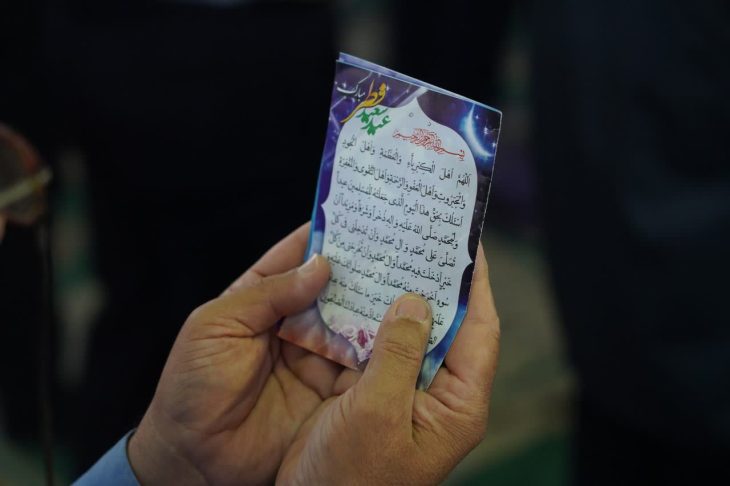 عید سعید فطر مبارک
بسم الله الرحمن الرحیم
اَللّهُمَّ اَهْلَ الْكِبْرِیاءِ وَالْعَظَمَةِ وَاَهْلَ الْجُودِ
وَالْجَبَرُوتِ وَاَهْلَ الْعَفْوِ وَالرَّحْمَةِ وَاَهْلَ التَّقْوى وَالْمَغْفِرَةِ
اَسْئَلُكَ بِحَقِّ هذَا الْیَوْمِ الَّذى جَعَلْتَهُ لِلْمُسْلِمینَ عیداً
وَلِمُحَمَّدٍ صَلَّى اللهُ عَلَیْهِ وَآلِهِ ذُخْراً وَشَرَفاً وَمَزیداً اَنْ
تُصَلِّىَ عَلى مُحَمَّدٍ وَآلِ مُحَمَّدٍ وَاَنْ تُدْخِلَنى فى كُلِّ
خَیْرٍ اَدْخَلْتَ فیهِ مُحَمَّداً وَآلَ مُحَمَّدٍ وَاَنْ تُخْرِجَنى مِنْ كُلِّ
سُوءٍ اَخْرَجْتَ مِنْهُ مُحَمَّداً وَآلَ مُحَمَّدٍ
خَیْرَ ما سَئَلَكَ مِنْهُ
مِنْهُ عِبادُكَ الصّالِحُونَ